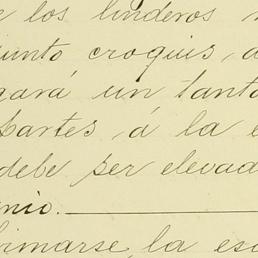 e los linderos
junto croquis, a
gará un tanto
partes, á la e
debe ser elevad
nio.
rimarse la es